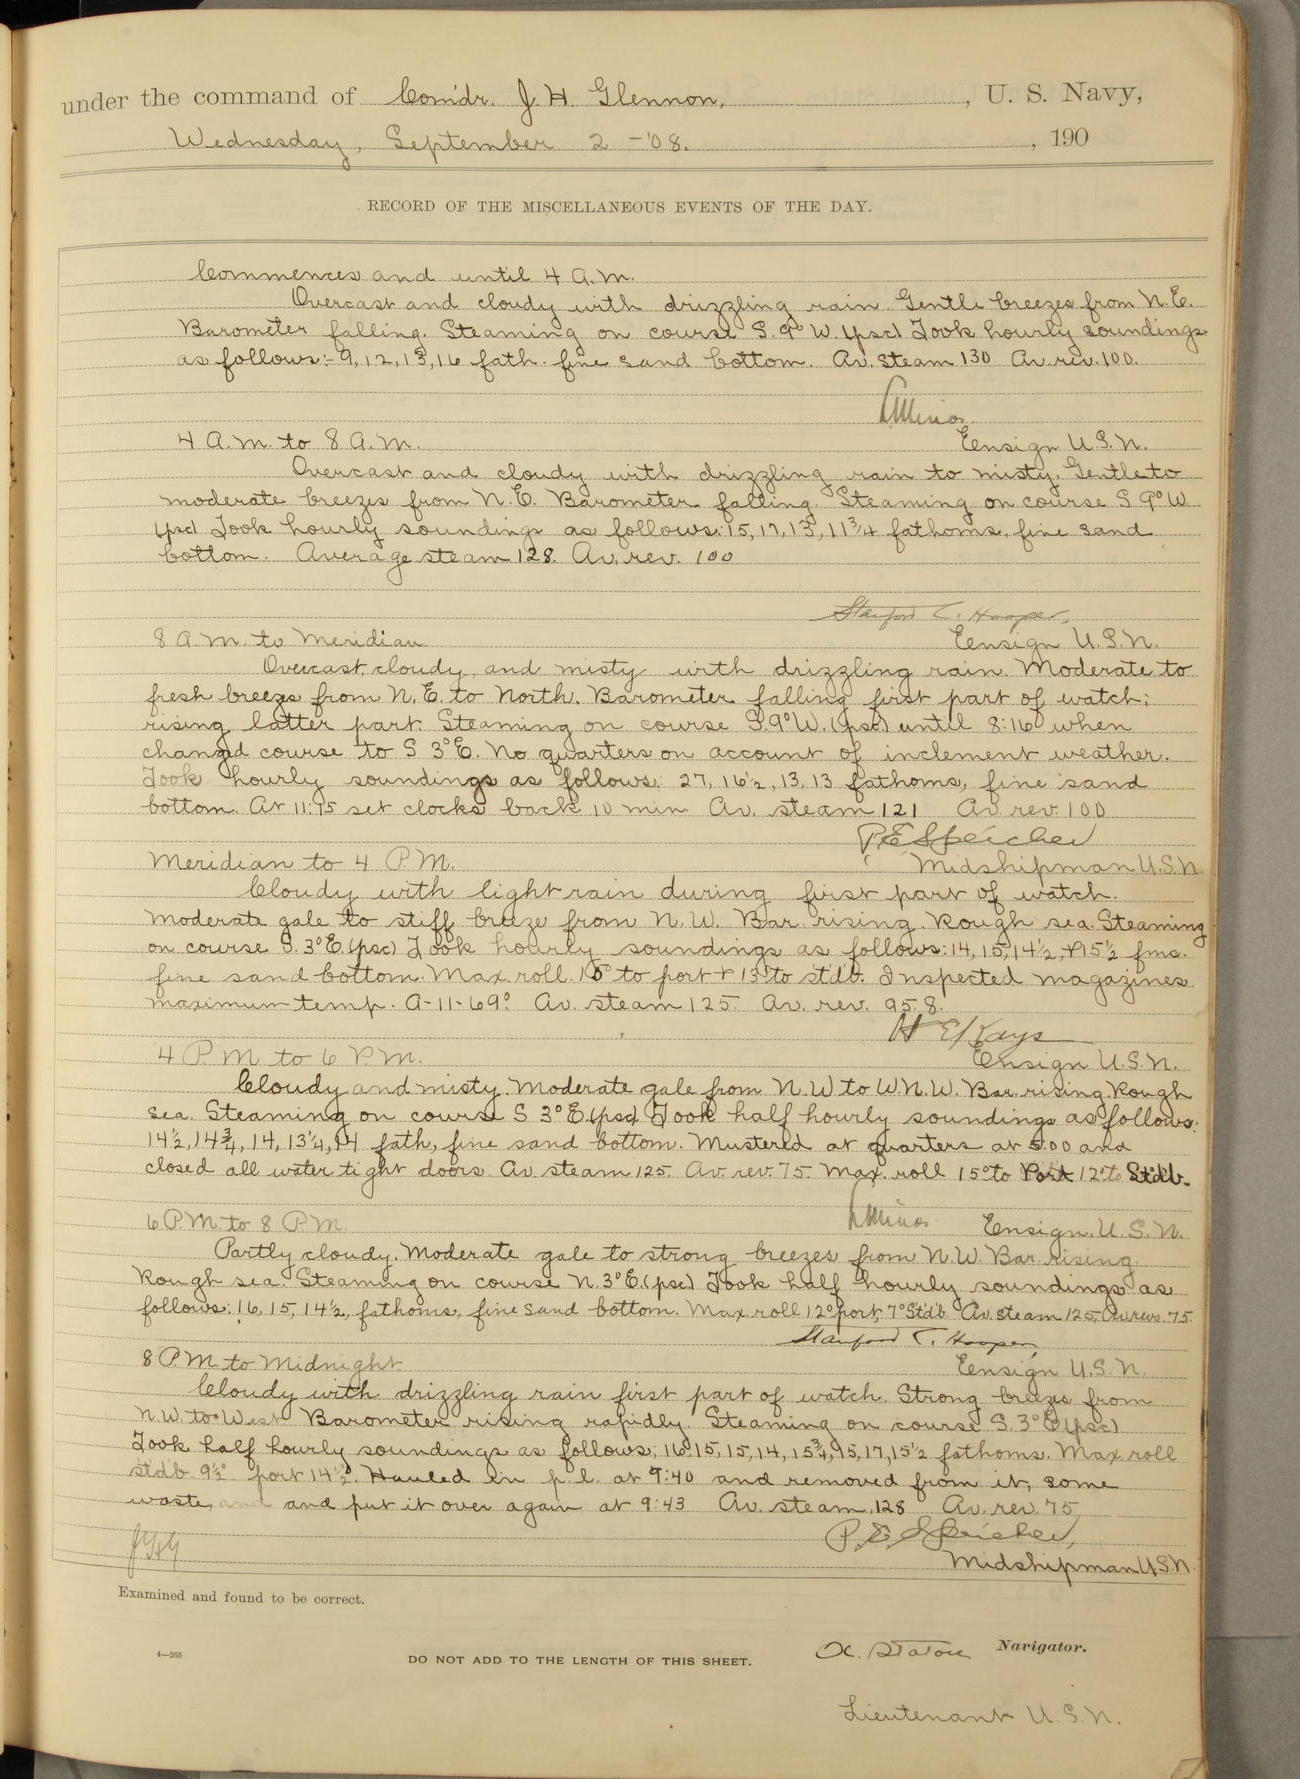 under the command of Com'dr. J. H. Glennon, , U. S. Navy,
Wednesday, September 2 - '08. , 190
RECORD OF THE MISCELLANEOUS EVENTS OF THE DAY.
Commences and until 4 A.M.
Overcast and cloudy with drizzling rain. Gentle breezes from N.E.
Barometer falling. Steaming on course S. 9° W. (psc) Took hourly soundings
as follows:- 9, 12, 13, 16 fath. fine sand bottom. Av. steam 130 Av. rev. 100.
L Minor
4 A.M. to 8 A.M. Ensign U.S.N.
Overcast and cloudy with drizzling rain to misty. Gentle to
moderate breezes from N.E. Barometer falling. Steaming on course S 9° W
(psc) Took hourly soundings as follows: 15, 17, 13, 11 3/4 fathoms, fine sand
bottom. Average steam 128. Av. rev. 100
Stanford C. Hooper,
8 A.M. to Meridian Ensign U.S.N.
Overcast, cloudy, and misty with drizzling rain. Moderate to
fresh breezes from N.E. to North. Barometer falling first part of watch;
rising latter part. Steaming on course S. 9° W. (psc) until 8:16 when
changed course to S 3° E. No quarters on account of inclement weather.
Took hourly soundings as follows: 27, 16 1/2, 13, 13 fathoms, fine sand
bottom. At 11:15 set clocks back 10 min Av. steam 121 Av. rev. 100
P. E. Speicher
Meridian to 4 P.M. Midshipman U.S.N.
Cloudy with light rain during first part of watch.
Moderate gale to stiff breeze from N.W. Bar. rising. Rough sea. Steaming
on course S. 3° E. (psc) Took hourly soundings as follows: 14, 15, 14 1/2, + 15 1/2 fms.
fine sand bottom. Max. roll. 15° to port + 13° to stdb. Inspected magazines
maximum temp. A-11-69°. Av. steam 125. Av. rev. 95.8.
H E Kays
4 P.M. to 6 P.M. Ensign U.S.N.
Cloudy and misty. Moderate gale from N.W to W.N.W. Bar. rising. Rough
sea. Steaming on course S 3° E. (psc) Took half hourly soundings as follows:
14 1/2, 14 3/4, 14, 13 1/4, 14 fath, fine sand bottom. Mustered at quarters at 5.00 and
closed all water tight doors. Av steam 125. Av. rev. 75. Max. roll 15° to Port 12° to Stdb.
L Minor
6 P.M. to 8 P.M. Ensign. U.S.N.
Partly cloudy. Moderate gale to strong breezes from N.W Bar. rising.
Rough sea. Steaming on course N. 3° E. (psc) Took half hourly soundings as
follows: 16, 15, 14 1/2, fathoms, fine sand bottom. Max roll 12° port, 7° Stdb. Av. steam 125, Av revs. 75.
Stanford C. Hooper,
8 P.M. to Midnight Ensign U.S.N.
Cloudy with drizzling rain first part of watch. Strong breezes from
N.W. to West. Barometer rising rapidly. Steaming on course S. 3° E (psc)
Took half hourly soundings as follows: 16, 15, 15, 14, 15 3/4, 15, 17, 15 1/2 fathoms. Max roll
stdb. 9 1/2° port 14 1/2°. Hauled in p.l. at 9:40 and removed from it, some
waste, and and put it over again at 9:43 Av. steam, 128 Av. rev. 75
P. E. Speicher,
JHG Midshipman U.S.N.
Examined and found to be correct.
4—265
DO NOT ADD TO THE LENGTH OF THIS SHEET.
Navigator.
Lieutenant U.S.N.